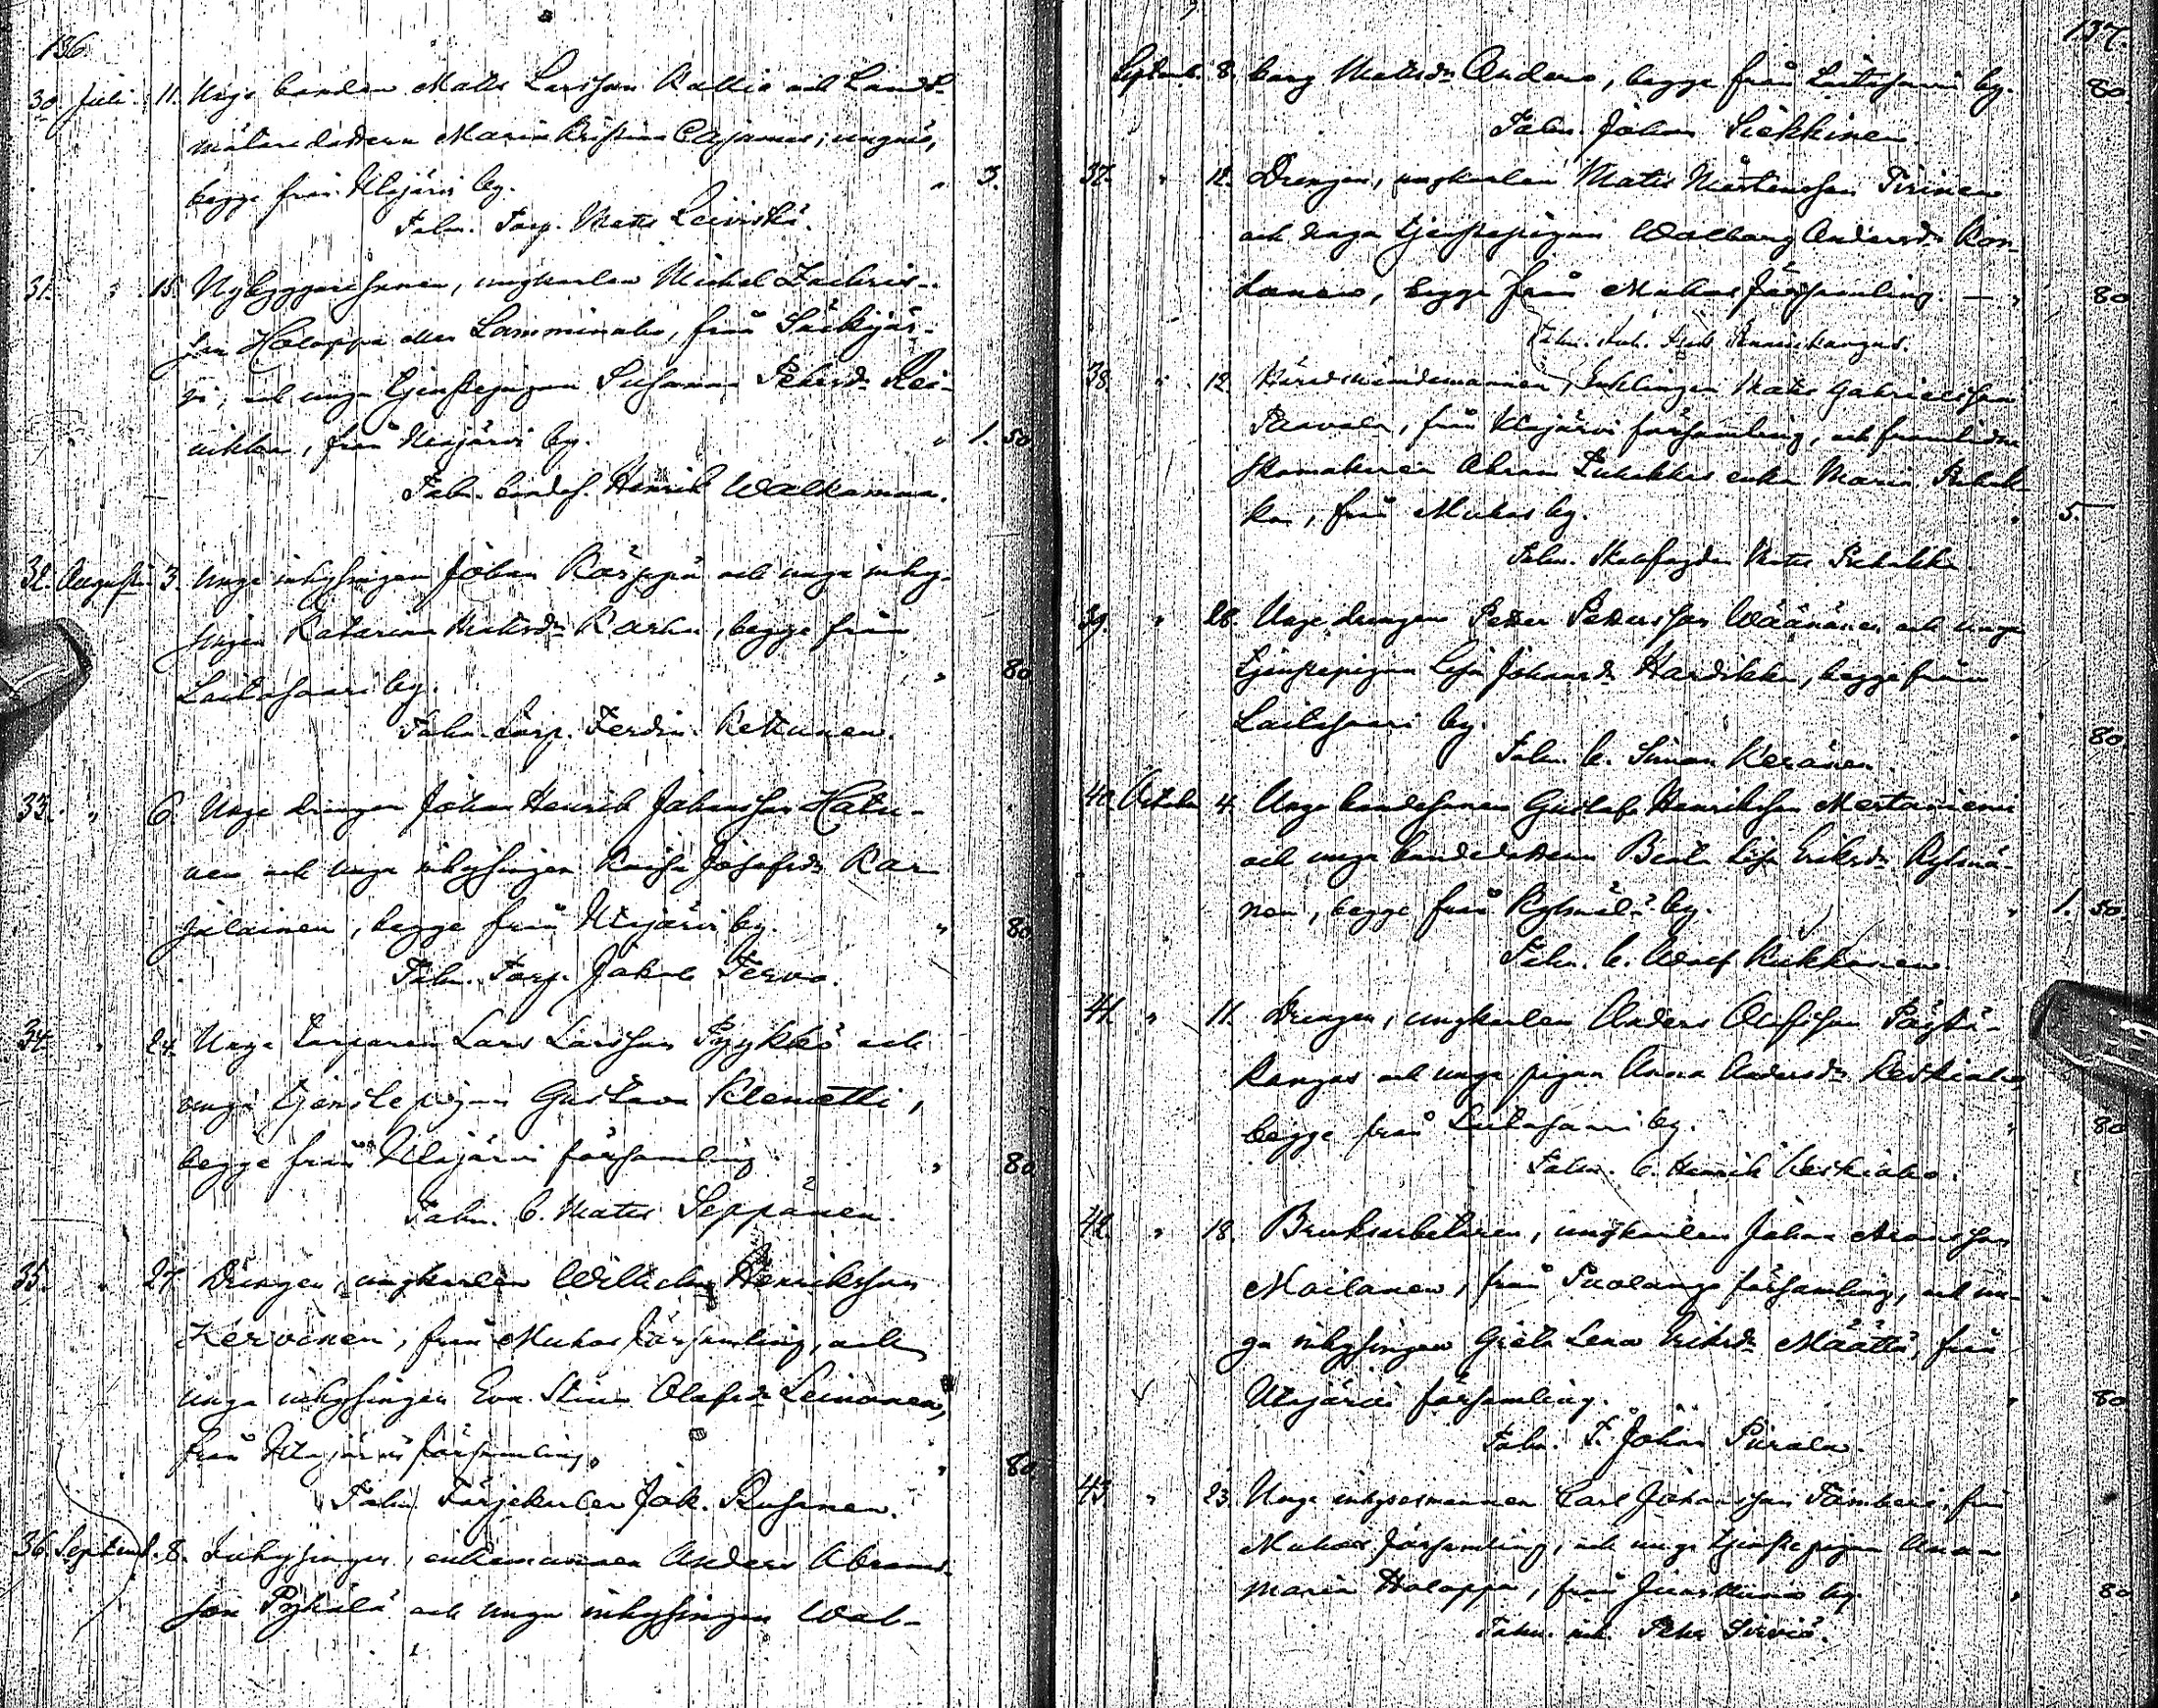 136
30. Juli. 11. Unge bonden Matts Larsson Kallio och Landt-
mätaredottern Maria Kristina Cajanus; ungmö,
begge från Utajärvi by. " 3.
Talm. Torp. Matts Leiviskä.
31. " 15. Nybyggaresonen, ungkarlen Michel Zachris-
son Holappa eller Lamminaho, från Särkijär-
vi, och unga tjenstepigan Susanna Petersdr Rei-
nikka, från Utajärvi by. " 1. 50
Talm. bondes. Henrik Walkama.
32. Augusti 3. Unge inhysingen Johan Kärppä och unga inhy-
singen Katarina Mattsdr Karhu, begge från
Laitasaari by. " 80
Talm. Torp. Ferdin. Kettunen.
33. " 6. Unge drengen Johan Henrik Johansson Hatu-
nen och unga inhysingen Kaisa Josefsdr Kar-
jalainen, begge från Utajärvi by. " 80
Talm. Torp. Jakob Tervo.
34. " 24. Unge Torparen Lars Larsson Pyykkö och
unga tjenstepigan Gustava Klemetti,
begge från Utajärvi församling " 80
Talm. B. Matts Seppänen.
35. " 27. Drengen, ungkarlen Wilhelm Henriksson
Kervinen, från Muhos församling, och
unga inhysingen Eva Stina Olofsdr Leinonen,
från Utajärvi församling. " 80
Talm. Färjekarlen Jak. Rusanen.
36. Septemb. 8. Inhysingen, enkemannen Anders Abrams-
son Pyhälä och unga inhysingen Wal-
137.
Septemb. 8. borg Mattsdr Anders, begge från Laitasaari by. 80.
Talm. Johan Siekkinen.
37. " 12. Drengen, ungkarlen Matts Mårtensson Tirinen
och unga tjenstepigan Walborg Andersdr Kon-
tanen, begge från Muhos församling. — " 80
38. " 12. Häradsnämndemannen, Enklingen Matts Gabrielsson
Paavola, från Utajärvi församling, och framlidne
skomakaren Abram Pukakkas enka Maria
ka, från Muhos by. " 5.
Talm. Skallfogden Matts
39. " 26. Unge drengen Petter Pettersson Wäänänen och unga
tjenstepigan Lisa Johansdr Hardikka, begge från
Laitasaari by. " 80.
Talm. b. Simon Keränen.
40. October 4. Unge bondesonen Gustaf Henriksson Mertaniemi
och unga bondedottern Beata Lisa Eriksdr Kylmä-
nen, begge från Kylmälä by. " 1. 50.
Talm. b. Olof Kukkonen.
41. " 11. Drengen, ungkarlen Anders Olofsson Pöytä-
kangas och unga pigan Anna Andersdr Keskiaho,
begge från Laitasaari by. " 80
Talm. b. Henrik Keskiaho.
42. " 18. Bruksarbetaren, ungkarlen Johan Aronsson
Moilanen, från Puolango församling, och un-
ga inhysingen Greta Lena Eriksdr Määttä, från
Utajärvi församling. " 80
Talm. T. Johan Piirala.
43 " 23. Unge inhysesmannen Carl Johansson Tomberi, från
Muhos församling, och unga tjenstepigan Anna
Maria Holappa, från Juorkuna by. " 80
Talm. inh. Petter Sirviö.